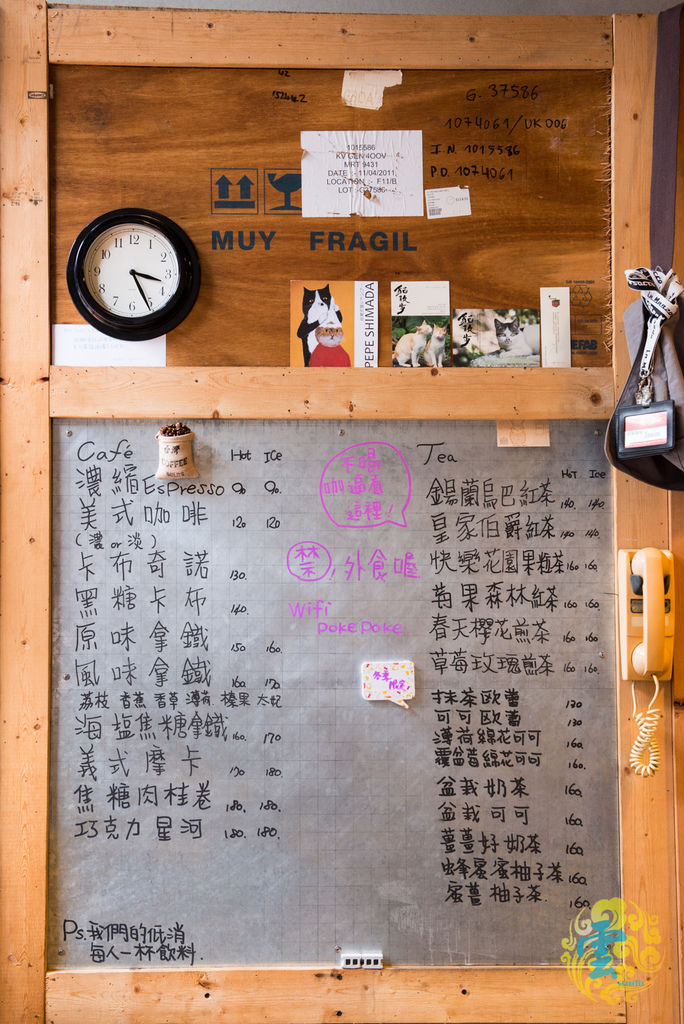 42
G. 37586
1074061/UK006
I.N. 1015586
P.O. 1074061
1015586
KV GEN 4OOV
MRT 9431
DATE :- 11/04/2011
LOCATION :- F11/B
MUY FRAGIL
12 1 2 3 4 5 6 7 8 9 10 11
PEPE SHIMADA
Café
Hot ICe
濃縮 Espresso 90 90.
美式咖啡 120 120
(濃 or 淡)
卡布奇諾 130.
黑糖卡布 140.
原味拿鐵 150 160.
風味拿鐵 160 170
荔枝 香蕉 香草 薄荷 榛果 太妃
海塩焦糖拿鐵 160. 170
義式摩卡 170 180.
焦糖肉桂卷 180. 180.
巧克力星河 180. 180.
Ps.我們的低消
每人一杯飲料.
不喝
咖啡看
這裡!
禁!外食喔
Wifi
pokepoke
冬季
限定
Tea
HOT Ice
錫蘭烏巴紅茶 140. 140.
皇家伯爵紅茶 140. 140.
快樂花園果粒茶 160 160.
莓果森林紅茶 160 160.
春天櫻花煎茶 160 160.
草莓玫瑰煎茶 160 160.
抹茶歐蕾 130
可可歐蕾 130
薄荷綿花可可 160.
覆盆莓綿花可可 160.
盆栽奶茶 160.
盆栽可可 160.
薑薑好奶茶 160.
蜂蜜蜜柚子茶 160.
蜜薑柚子茶. 160.
雲